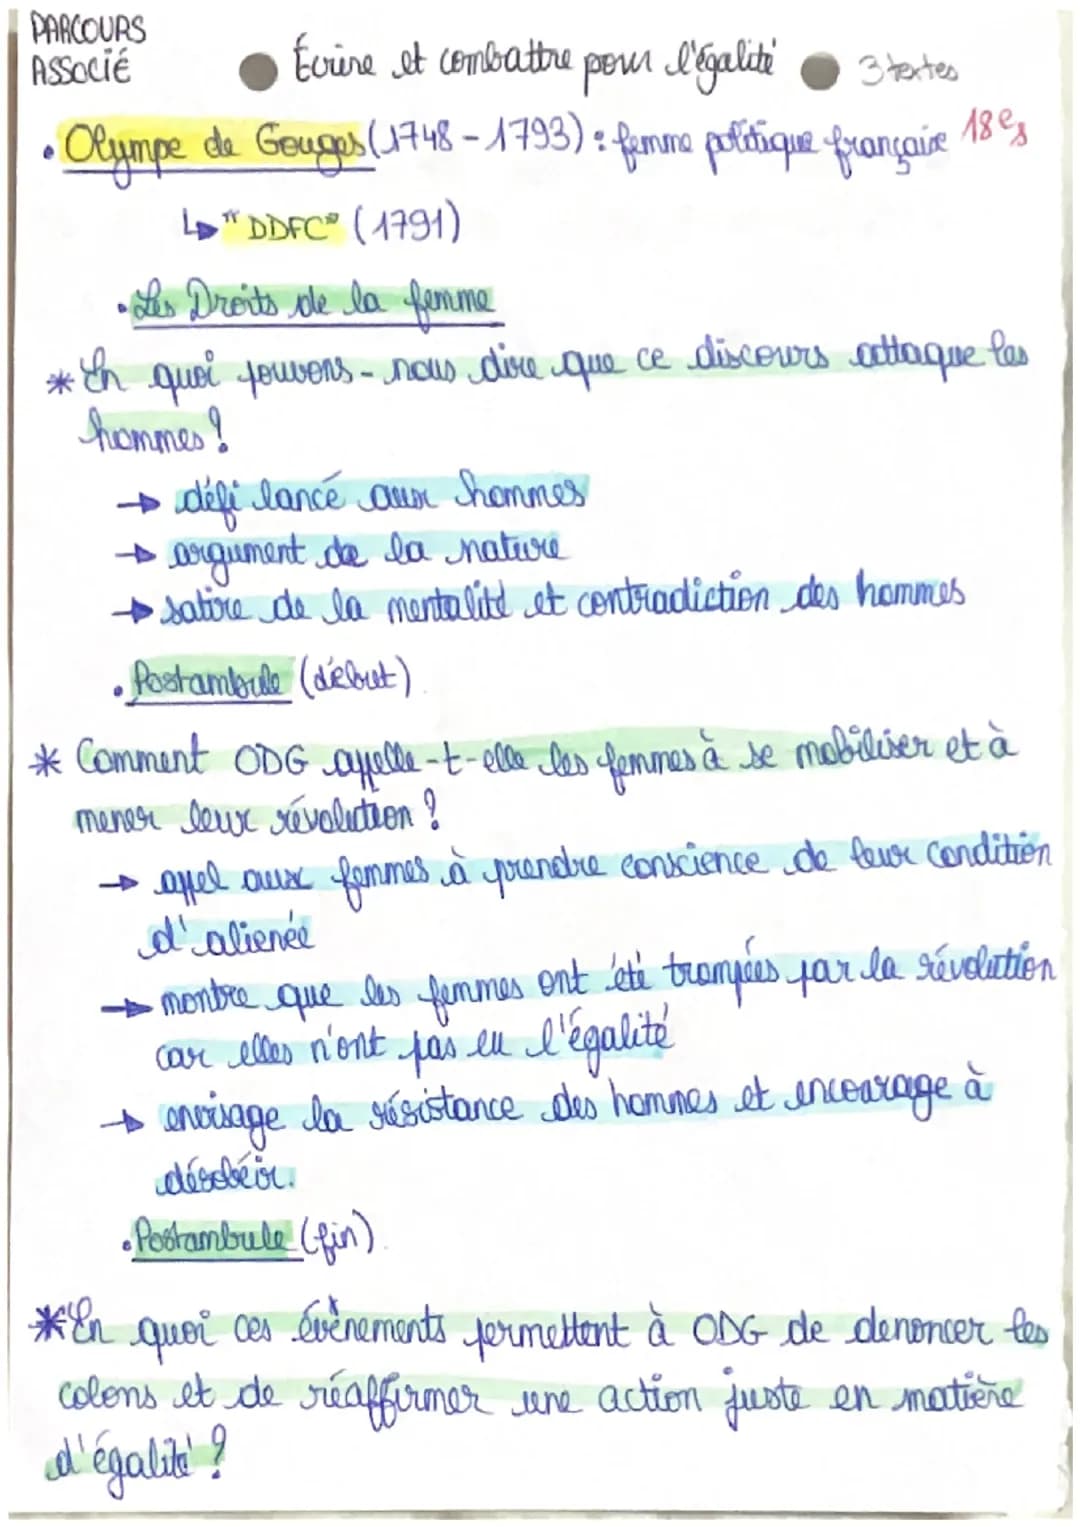 PARCOURS
ASSOCIÉ
Écrire et combattre pour l'égalité
3 textes
• Olympe de Gouges (1748 - 1793) : femme politique française 18e s
↳ "DDFC" (1791)
• Les Droits de la femme
* En quoi pouvons-nous dire que ce discours attaque les
hommes ?
→ défi lancé aux hommes
→ argument de la nature
→ satire de la mentalité et contradiction des hommes
• Postambule (début)
* Comment ODG apelle-t-elle les femmes à se mobiliser et à
mener leur révolution ?
→ appel aux femmes à prendre conscience de leur condition
d'alienée
→ montre que les femmes ont été trompées par la révolution
car elles n'ont pas eu l'égalité
→ envisage la résistance des hommes et encourage à
désobéir.
• Postambule (fin)
* En quoi ces évènements permettent à ODG de denoncer les
colons et de réaffirmer une action juste en matière
d'égalité ?